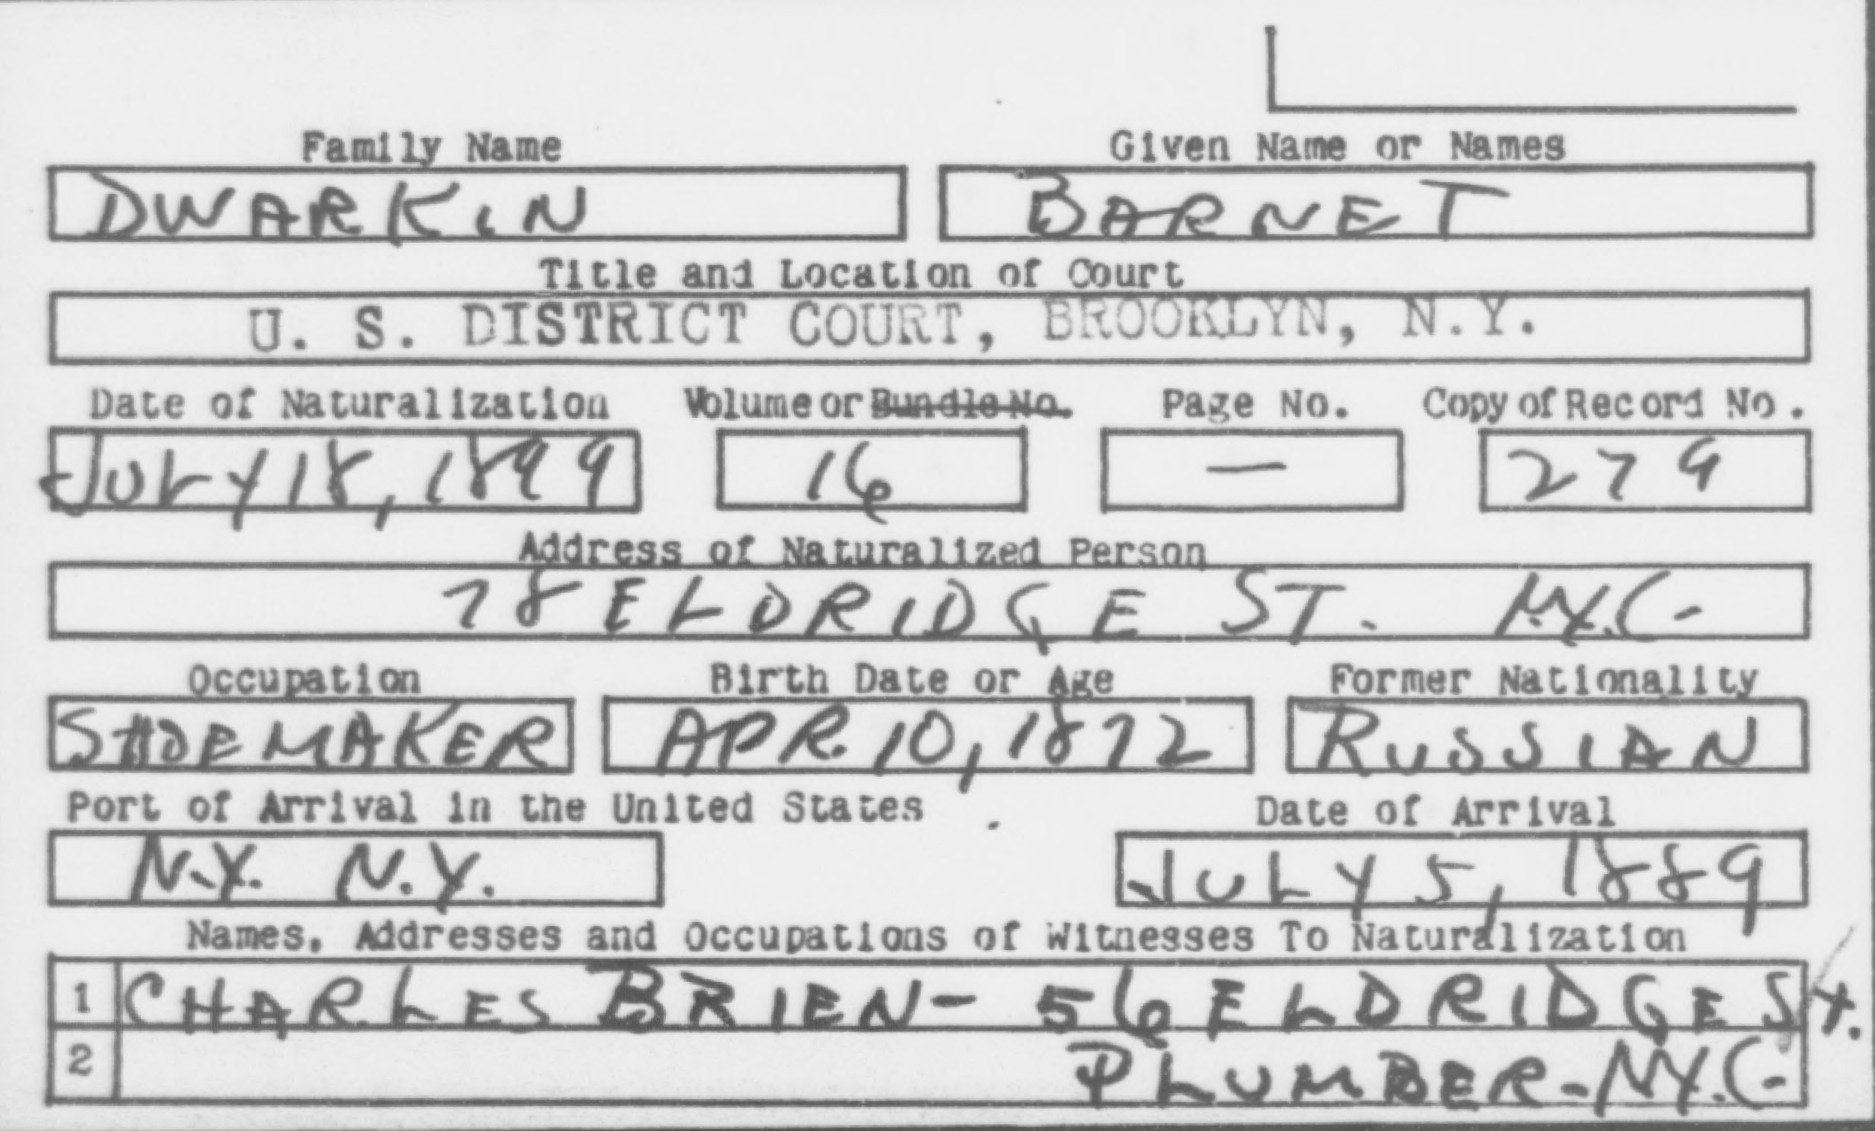 Family Name Given Name or Names
DWARKIN BARNET
Title and Location of Court
U. S. DISTRICT COURT, BROOKLYN, N.Y.
Date of Naturalization Volume or Bundle No. Page No. Copy of Record No.
JULY 18, 1899 16 — 279
Address of Naturalized Person
78 ELDRIDGE ST. N.Y.C.
Occupation Birth Date or Age Former Nationality
SHOEMAKER APR. 10, 1872 RUSSIAN
Port of Arrival in the United States Date of Arrival
N.Y. N.Y. JULY 5, 1889
Names, Addresses and Occupations of Witnesses To Naturalization
1 CHARLES BRIEN - 56 ELDRIDGE St.
2 PLUMBER - N.Y.C.